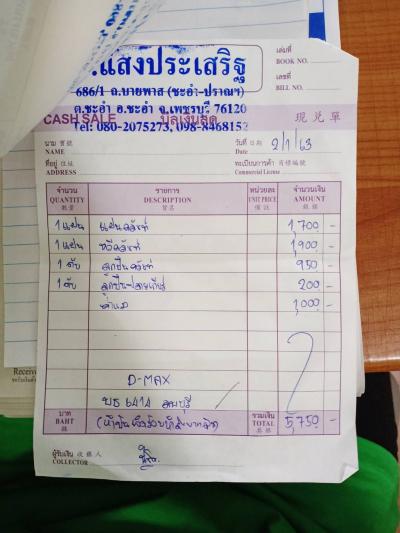 .แสงประเสริฐ
686/1 ถ.บายพาส (ชะอำ-ปราณฯ)
ต.ชะอำ อ.ชะอำ จ.เพชรบุรี 76120
Tel: 080-2075273, 098-8468152
เล่มที่
BOOK NO.
เลขที่
BILL NO.
CASH SALE บิลเงินสด 現兑單
นาม 寶號
NAME
วันที่ 日期 2/1/63
Date
ที่อยู่ 住址
ADDRESS
ทะเบียนการค้า 商標編號
Commercial License
จำนวน รายการ หน่วยละ จำนวนเงิน
QUANTITY DESCRIPTION UNIT PRICE AMOUNT
數量 貨名 備註 銀額
1 แผ่น แผ่นคลัทช์ 1,700 -
1 แผ่น หวีคลัทช์ 1,900 -
1 ตับ ลูกปืนคลัทช์ 950 -
1 ตับ ลูกปืนปลายเกียร์ 200 -
ค่าแรง 1,000 -
D-MAX
บธ 6414 ลพบุรี
บาท รวมเงิน
BAHT (ห้าพันเจ็ดร้อยห้าสิบบาทถ้วน) TOTAL 5,750 -
銖 總銀
ผู้รับเงิน 收銀人
COLLECTOR
Receive